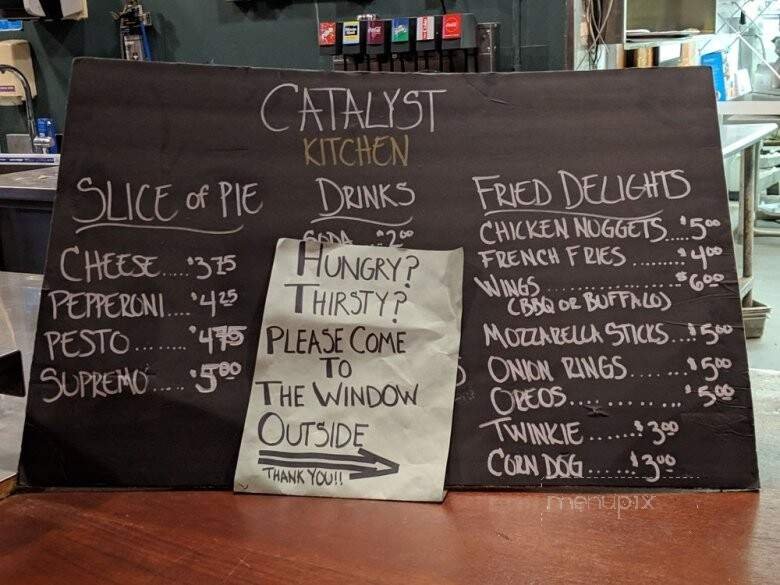 CATALYST
KITCHEN
SLICE of PIE
CHEESE....$3.75
PEPPERONI....$4.25
PESTO.......$4.75
SUPREMO....$5.00
DRINKS
SODA $2.00
HUNGRY?
THIRSTY?
PLEASE COME
TO
THE WINDOW
OUTSIDE
THANK YOU!!
FRIED DELIGHTS
CHICKEN NUGGETS...$5.00
FRENCH FRIES........$4.00
WINGS.............$6.00
(BBQ OR BUFFALO)
MOZZARELLA STICKS...$5.00
ONION RINGS.......$5.00
OREOS............$5.00
TWINKIE......$3.00
CORN DOG.....$3.00
menupix